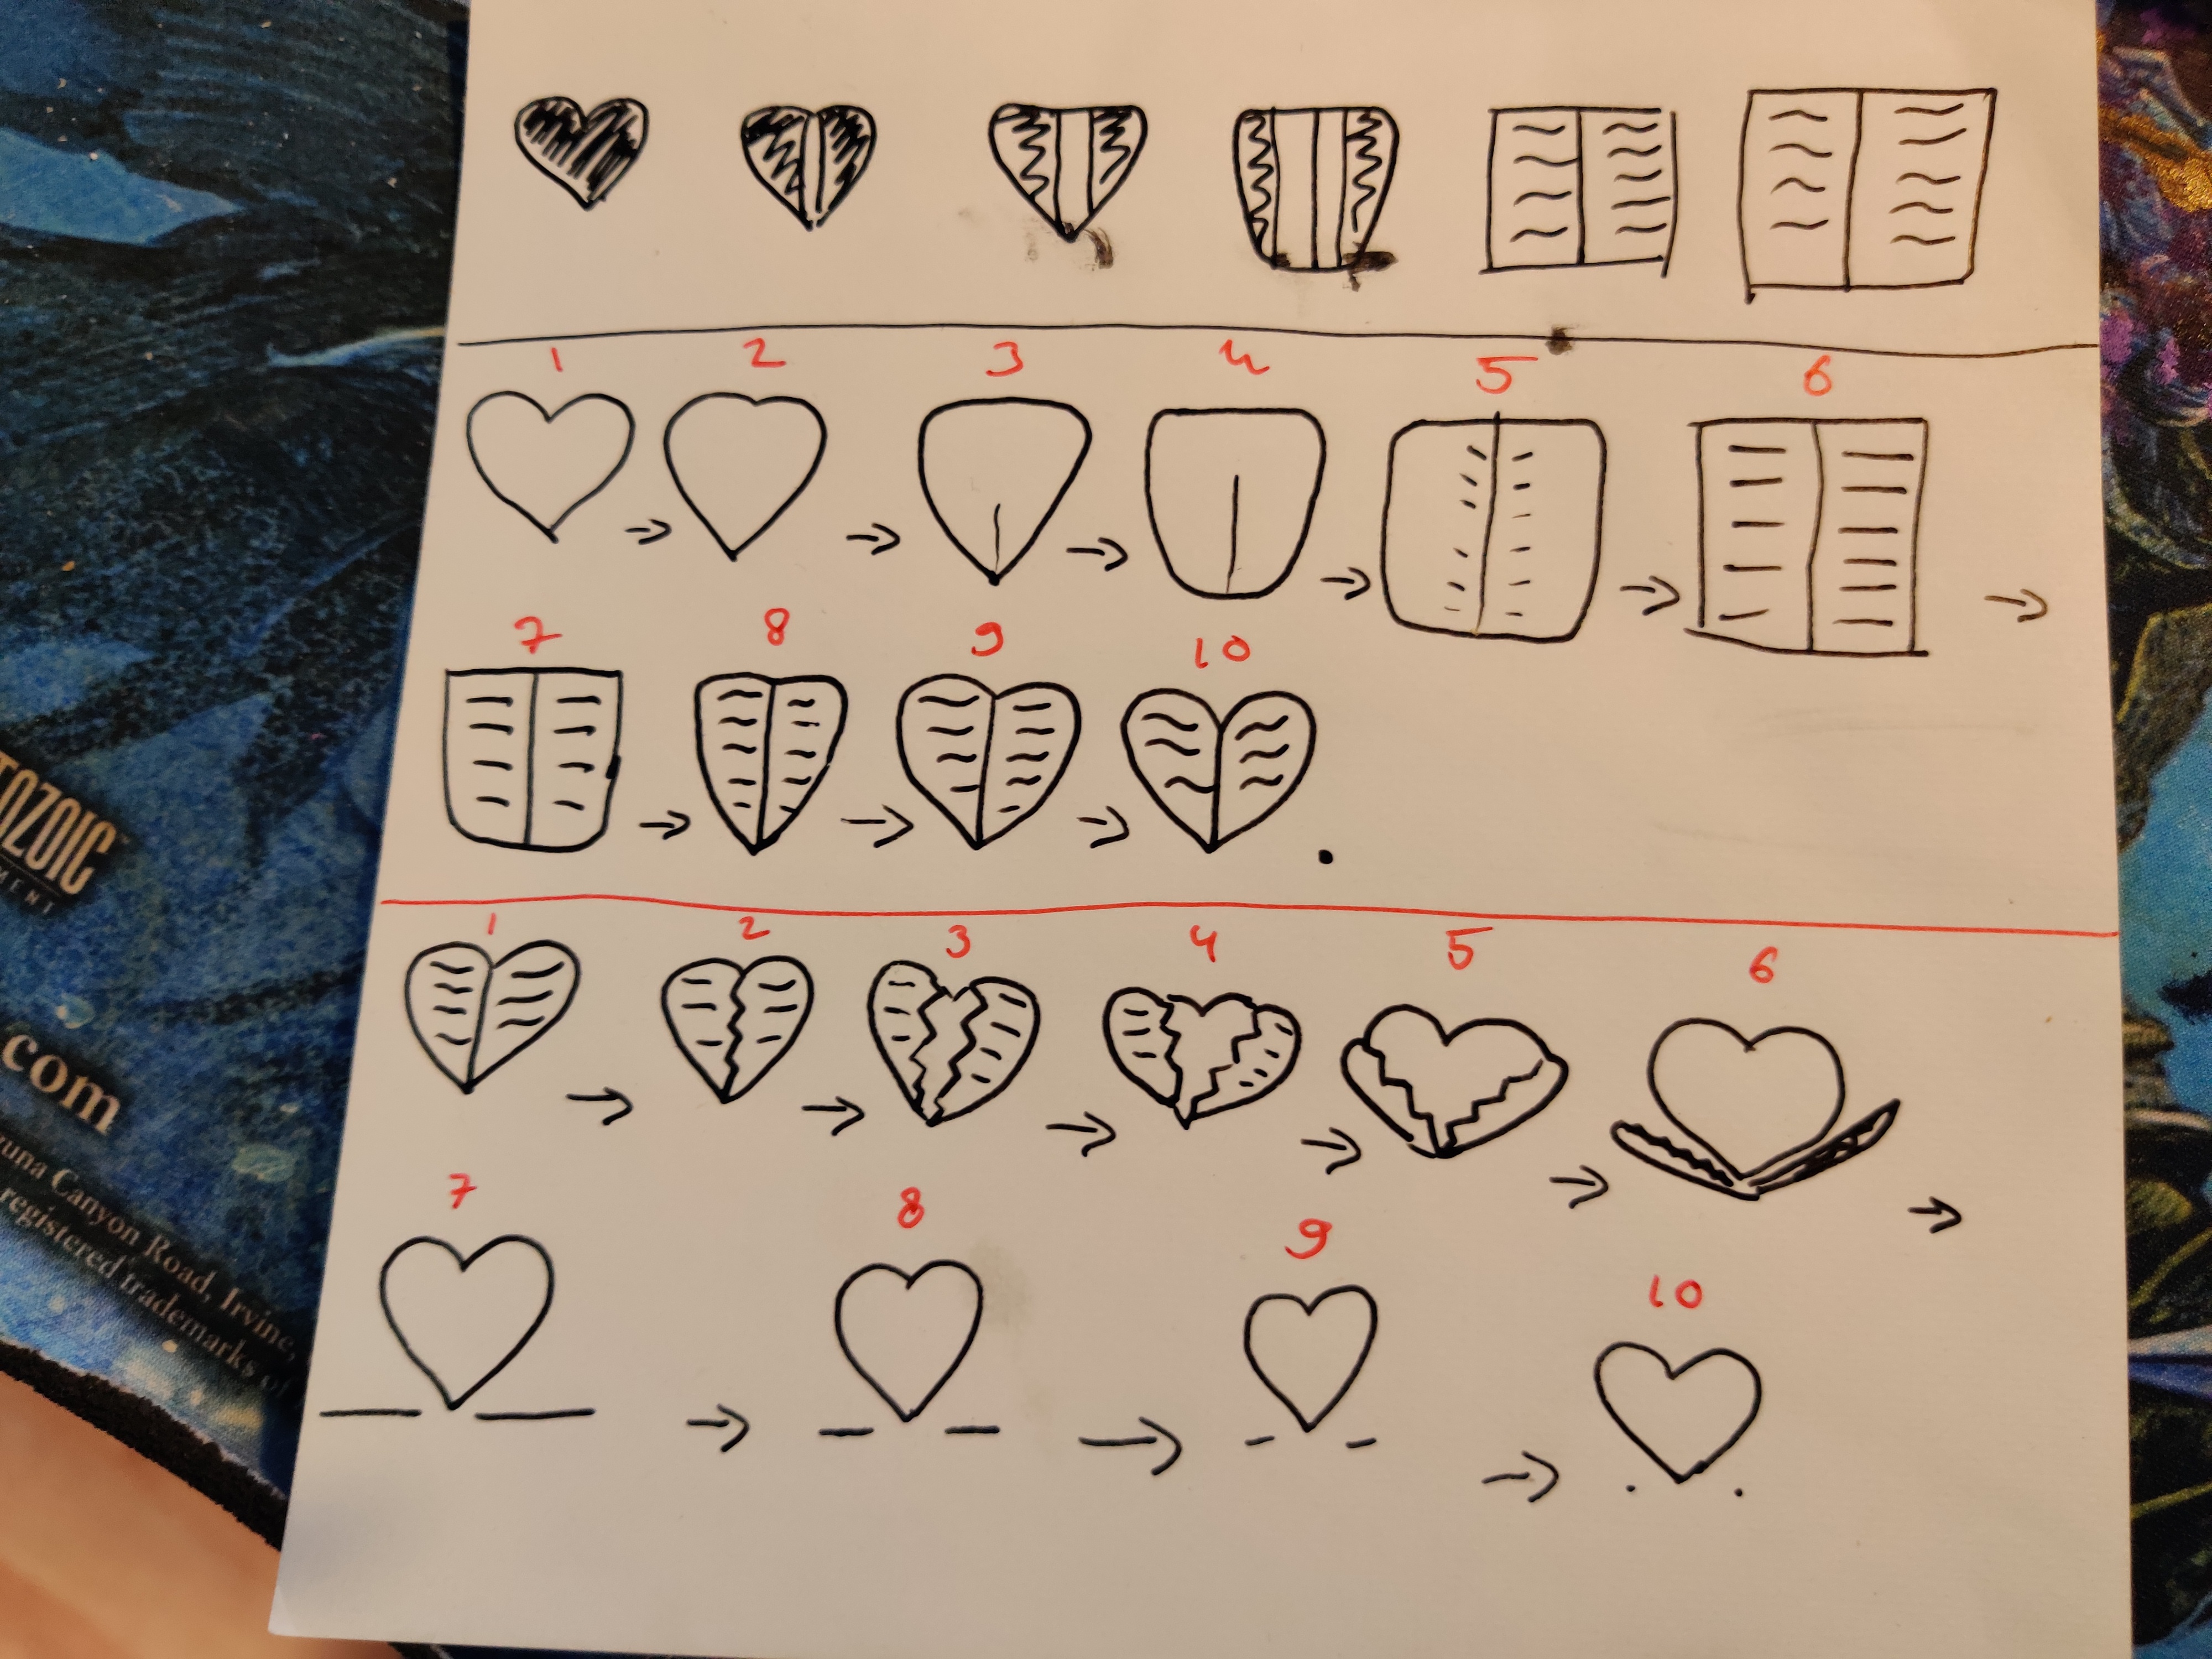 1 2 3 4 5 6
7 8 9 10
1 2 3 4 5 6
7 8 9 10
TOZOIC
MENT
com
Canyon Road, Irvine,
registered trademarks of